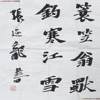 蓑笠翁獨
釣寒江雪
張延龍